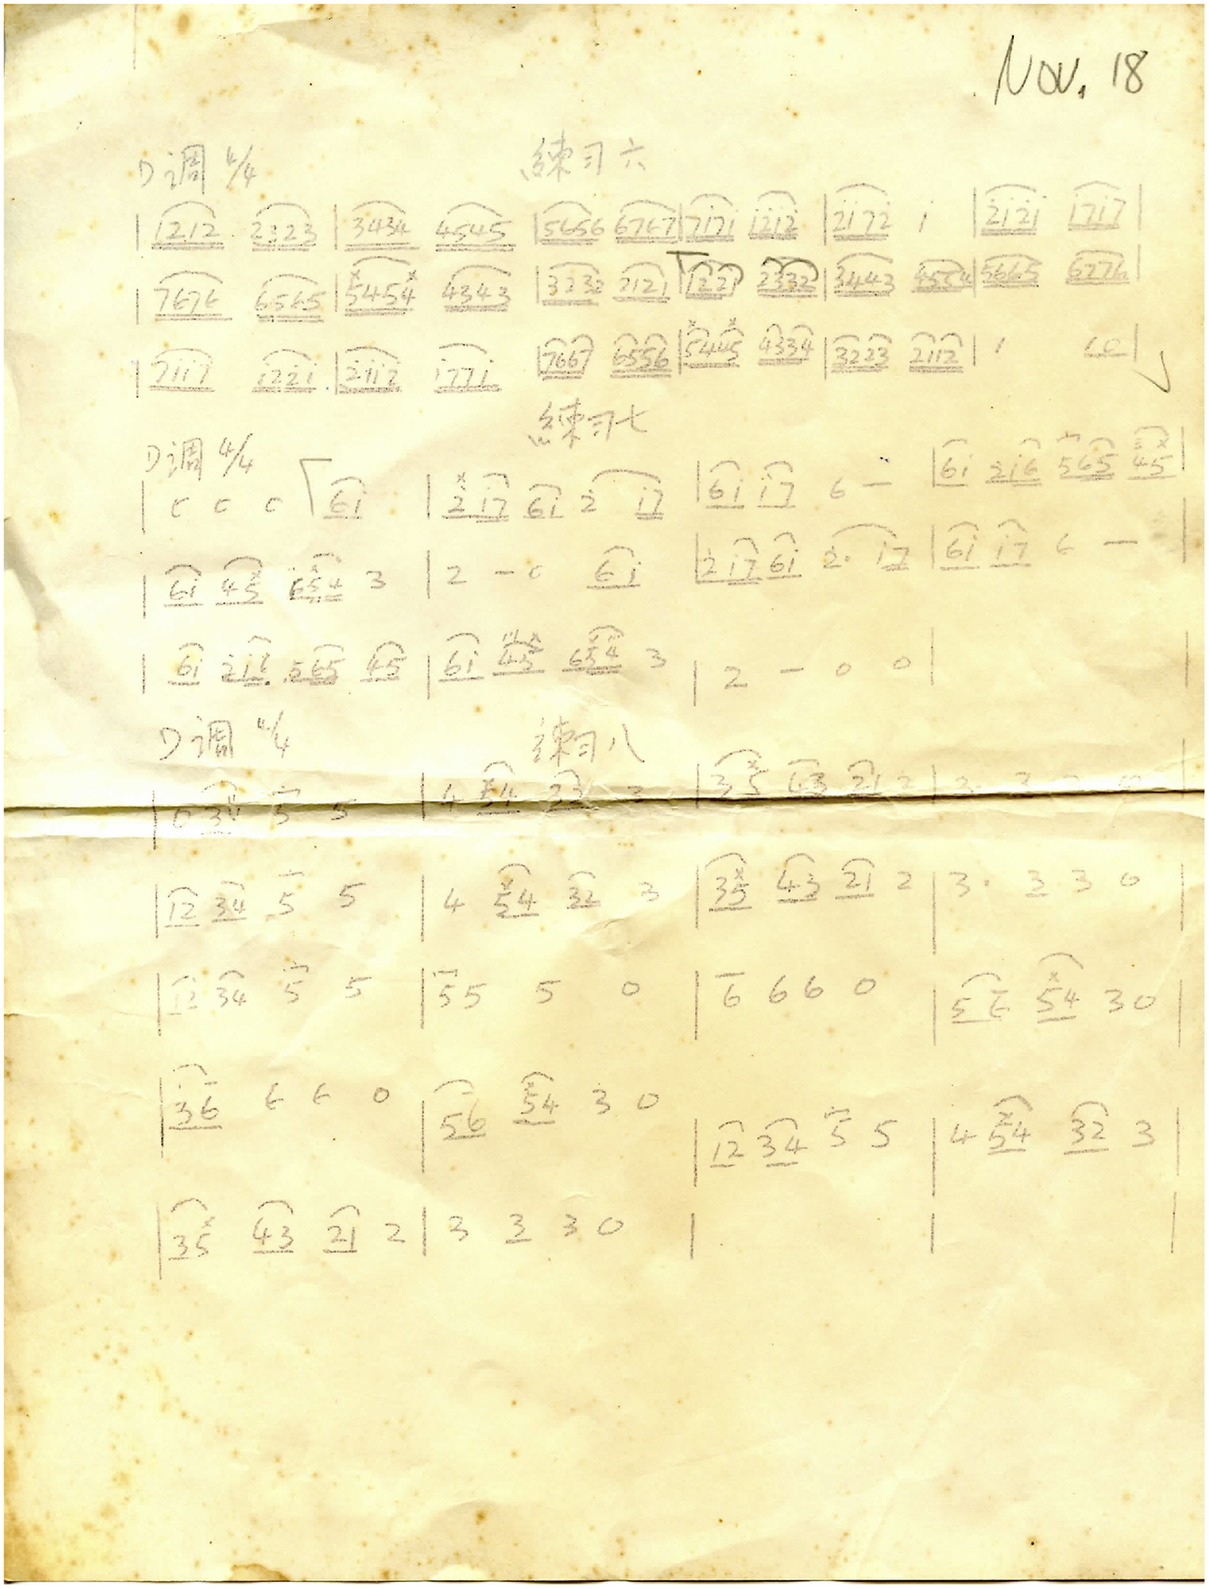 Nov. 18
D调 4/4 練习六
| 1212 2323 | 3434 4545 | 5656 6767 | 7171 1212 | 2172 1 | 2121 1717 |
| 7676 6565 | 5454 4343 | 3232 2121 | 1221 2332 | 3443 4554 | 5665 6776 |
| 7117 1221 | 2112 1771 | 7667 6556 | 5445 4334 | 3223 2112 | 1 10 |
練习七
D调 4/4
| 0 0 0 61 | 2 17 61 2 17 | 61 17 6 — | 61 216 565 45 |
| 61 45 654 3 | 2 — 0 61 | 2 17 61 2· 17 | 61 17 6 — |
| 61 216 565 45 | 61 45 654 3 | 2 — 0 0 | |
D调 4/4 練习八
| 0 34 5 5 | 4 54 32 3 | 35 43 21 2 | 3· 3
| 12 34 5 5 | 4 54 32 3 | 35 43 21 2 | 3· 3 3 0 |
| 12 34 5 5 | 55 5 0 | 6 6 6 0 | 56 54 3 0 |
| 36 6 6 0 | 56 54 3 0 | 12 34 5 5 | 4 54 32 3 |
| 35 43 21 2 | 3 3 3 0 | | |